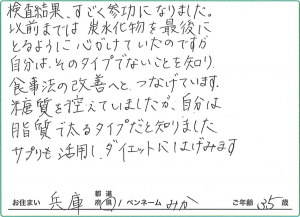 検査結果、すごく参功になりました。
以前までは 炭水化物を最後に
とるように 心がけていたのですが
自分は、そのタイプでないことを知り、
食事法の改善へと つなげています。
糖質を控えていましたが、自分は
脂質で太るタイプだと知りました
サプリも 活用し、ダイエットにはげみます
お住まい 兵庫 都道府県 ペンネーム みか ご年齢 35 歳